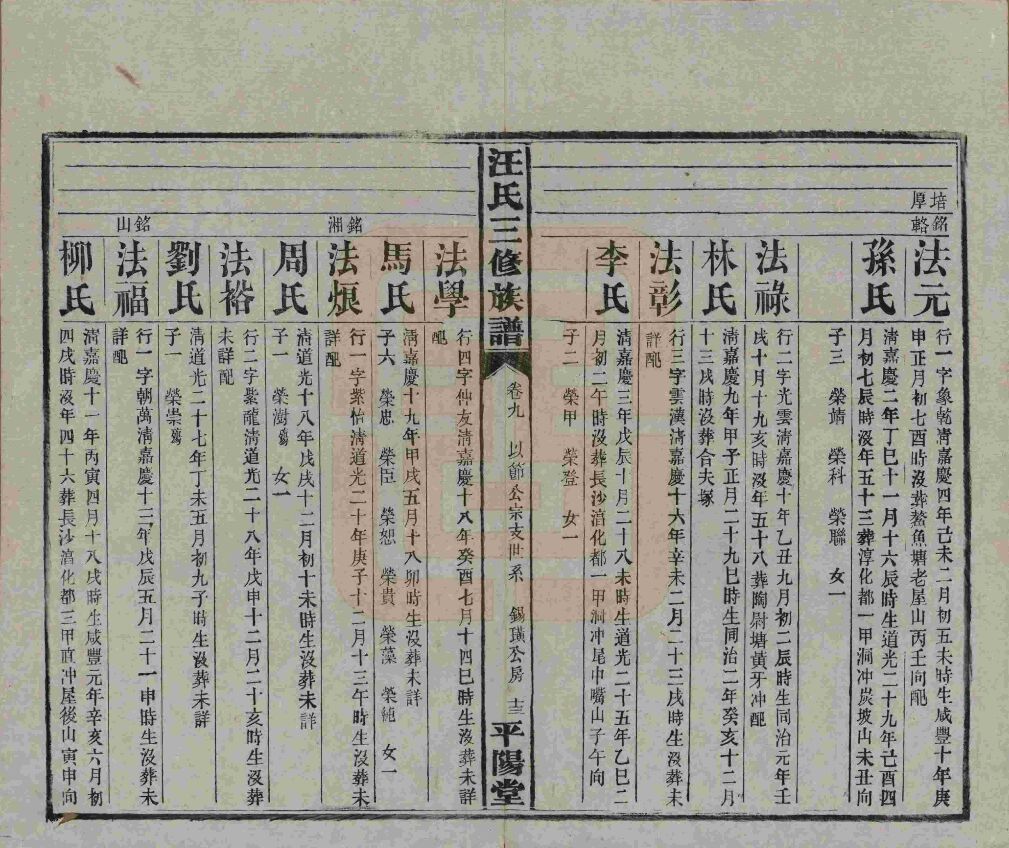 培厚
銘輅
法元
行一字象乾清嘉慶四年己未二月初五未時生咸豐十年庚
申正月初七酉時沒葬鰲魚塘老屋山丙壬向配
孫氏
清嘉慶二年丁巳十一月十六辰時生道光二十九年己酉四
月初七辰時沒年五十三葬淳化都一甲洞冲炭坡山未丑向
子三 榮靖 榮科 榮聯 女一
法祿
行二字光雲清嘉慶十年乙丑九月初二辰時生同治元年壬
戌十月十九亥時沒年五十八葬陶尉塘黃牙冲配
林氏
清嘉慶九年甲子正月二十九巳時生同治二年癸亥十二月
十三戌時沒葬合夫塚
法彰
行三字雲漢清嘉慶十六年辛未二月二十三戌時生沒葬未
詳配
李氏
清嘉慶三年戊辰十月二十八未時生道光二十五年乙巳二
月初二午時沒葬長沙淯化都一甲洞冲尾中嘴山子午向
子二 榮甲 榮登 女一
汪氏三修族譜
卷九 以節公宗支世系 錫璜公房 十三
平陽堂
法學
行四字仲友清嘉慶十八年癸酉七月十四巳時生沒葬未詳
配
馬氏
清嘉慶十九年甲戌五月十八卯時生沒葬未詳
子六 榮忠 榮臣 榮恕 榮貴 榮藻 榮純 女一
銘湘
法烺
行一字紫怡清道光二十年庚子十二月十三午時生沒葬未
詳配
周氏
清道光十八年戊戌十二月初十未時生沒葬未詳
子一 榮澍殤 女一
法裕
行二字紫龍清道光二十八年戊申十二月二十亥時生沒葬
未詳配
劉氏
清道光二十七年丁未五月初九子時生沒葬未詳
子一 榮崇殤
銘山
法福
行一字朝萬清嘉慶十三年戊辰五月二十一申時生沒葬未
詳配
柳氏
清嘉慶十一年丙寅四月十八戌時生咸豐元年辛亥六月初
四戌時沒年四十六葬長沙淯化都三甲直冲屋後山寅申向